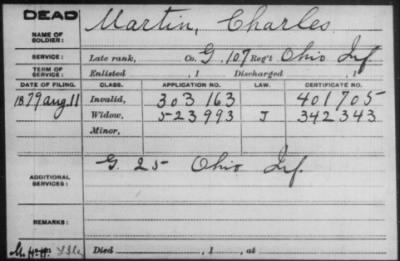 DEAD
NAME OF SOLDIER: Martin, Charles
SERVICE: Late rank, Co. G. 107 Reg't Ohio Inf
TERM OF SERVICE: Enlisted , 1 Discharged , 1
DATE OF FILING. CLASS. APPLICATION NO. LAW. CERTIFICATE NO.
1879 Aug. 11 Invalid, 303 163 401705
Widow, 523993 J 342343
Minor,
ADDITIONAL SERVICES: G. 25 Ohio Inf.
REMARKS:
Died , 1 , at